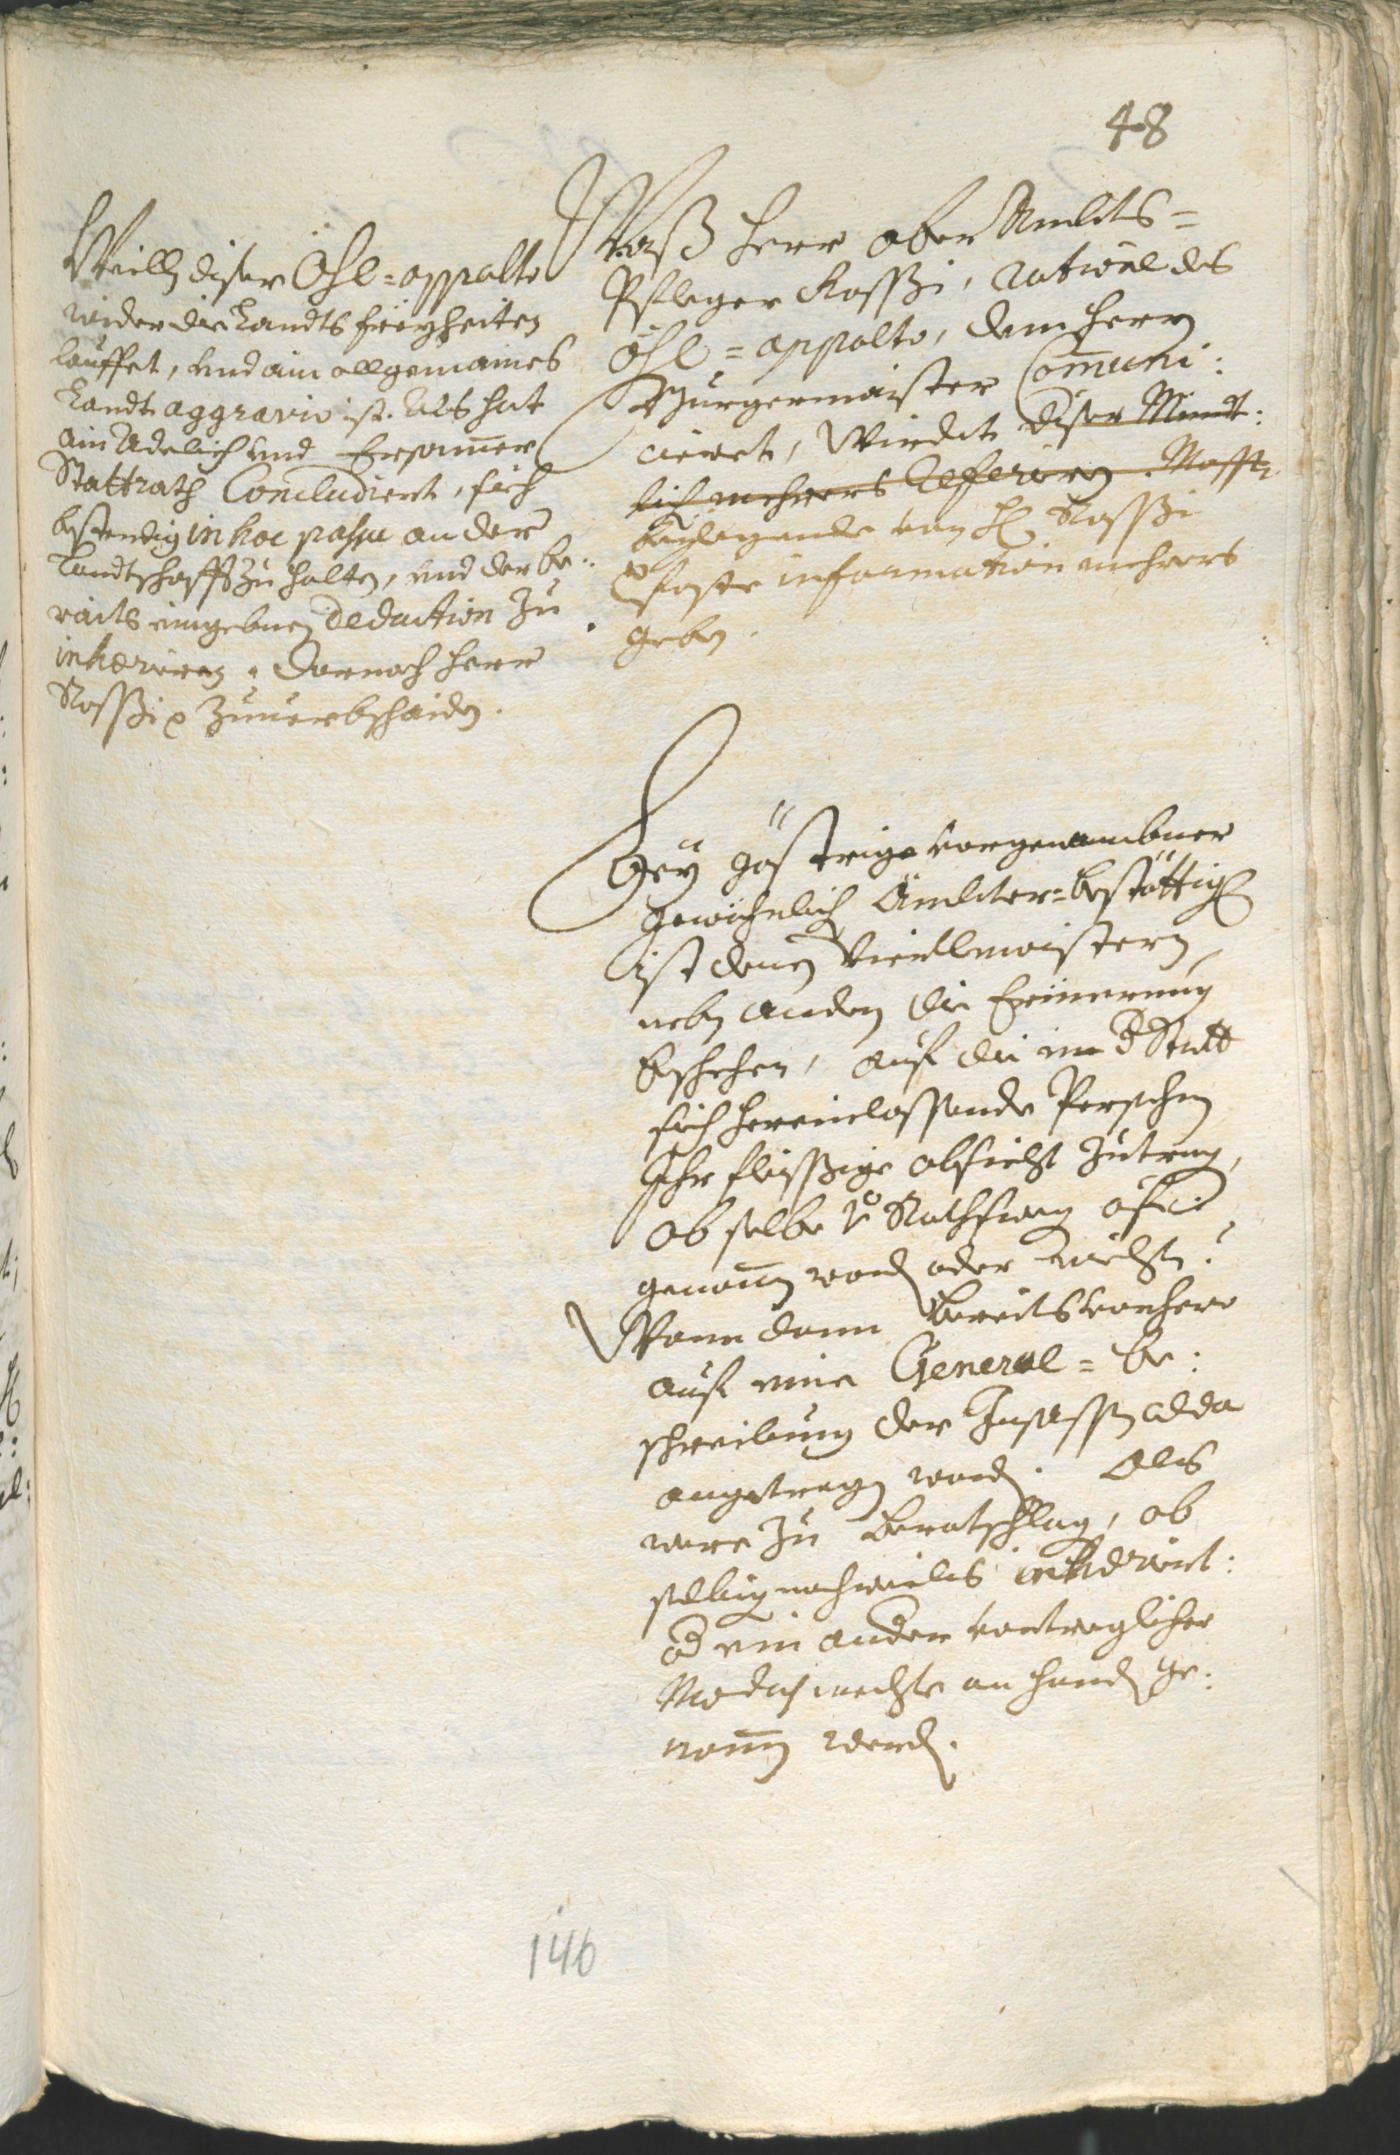 48
Weilln diser Öhl=appalto
wider die Landts freyheiten
lauffet, und ain allgemaines
Landts aggravio ist. Als hat
ain Adelich und Ersamer
Stattrath Concludiert, sich
bestendig in hoc passu an der
Landtschafft zu halten, und der be:
raits eingebnen Deduction zu
inhæriren. Darnach herr
Rossi zuuerbschaiden.
Waß herr ober Ambts=
Pfleger Rossi, ratione des
Öhl=appalto, dem herrn
Burgermaister Communi:
ciert, Würdt diser Mündt:
lich mehrers Referiren.
beyligende von H Rossi
information mehrers
geben.
Bey göstrig vorgenombner
gewohnlich Ämbter=bestättig
ist denen Viertlmaistern
neben andern die Erinnerung
beschehen, auf die in d Statt
sich hereinlassende Persohnen
Ihr fleissige obsicht zutragen,
ob selbe v Rathswegen
genomen word oder nicht?
Wann dann bereits vorhero
auf eine General=be:
schreibung der Insassen
angetragen word. Als
were zu beratschlag, ob
selbig nachmals inhæriert:
od ein ander vortraglicher
Modus mechte an hand ge:
nomen werd.
146